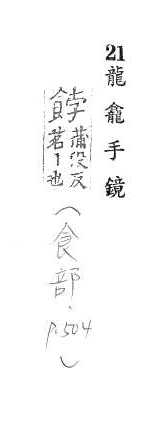 21 龍龕手鏡
餑蒲没反
茗丨也
(食部，p.504)